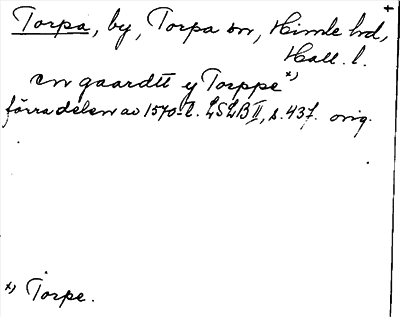 Torpa, by, Torpa sn, Himle hd,
Hall. l.
en gaardtt y Torppe x)
förra delen av 1570-t. LSLB II, s. 437. orig.
x) Torpe.